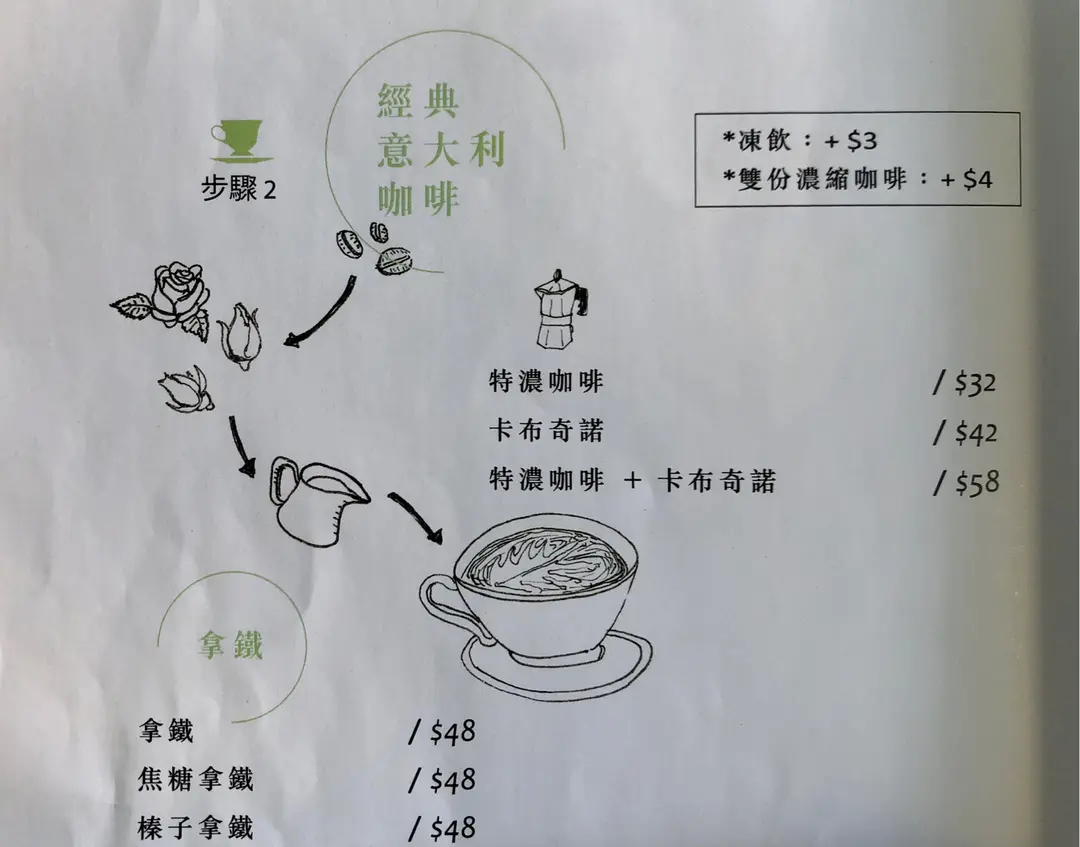 經典
意大利
咖啡
步驟 2
*凍飲：+ $3
*雙份濃縮咖啡：+ $4
特濃咖啡 / $32
卡布奇諾 / $42
特濃咖啡 + 卡布奇諾 / $58
拿鐵
拿鐵 / $48
焦糖拿鐵 / $48
榛子拿鐵 / $48